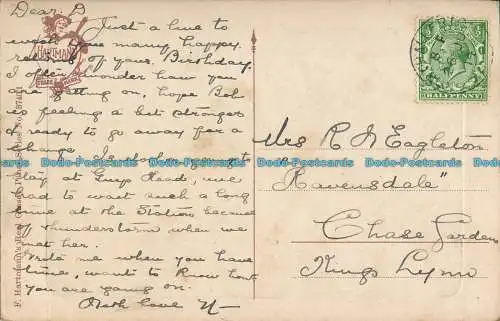 Dear. D
Just a line to
wish you many happy
of yours. Birthday.
I often wonder how you
are getting on, hope Bob
is feeling a bit stronger
& ready to go away for a
change.
day at Heads, we
had to wait such a long
time at the Station because
of thunderstorm when we
met her.
Write me when you have
time, want to know how
you are going on.
With love N-
HARTMANN
TRADE MARK
HALFPENNY
Mrs R N Eagleton
"Ravensdale"
Chase Gardens
Kings Lynn
Dodo-Postcards